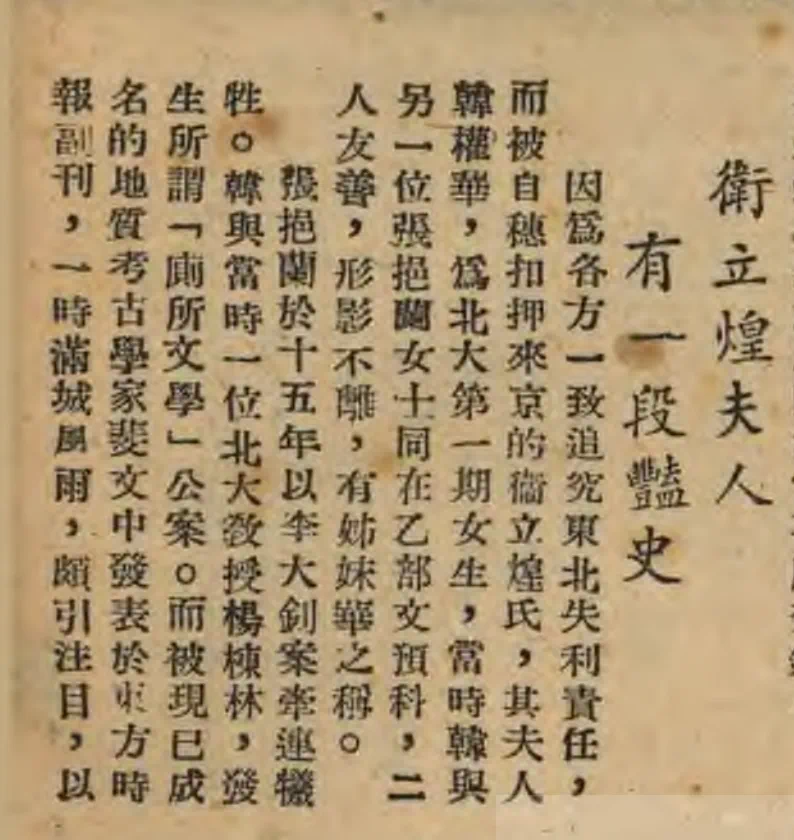 衛立煌夫人
有一段豔史
因爲各方一致追究東北失利責任，
而被自穗扣押來京的衞立煌氏，其夫人
韓權華，爲北大第一期女生，當時韓與
另一位張挹蘭女士同在乙部文預科，二
人友善，形影不離，有姊妹華之稱。
張挹蘭於十五年以李大釗案牽連犧
牲。韓與當時一位北大敎授楊棟林，發
生所謂「廁所文學」公案。而被現已成
名的地質考古學家斐文中發表於東方時
報副刊，一時滿城風雨，頗引注目，以